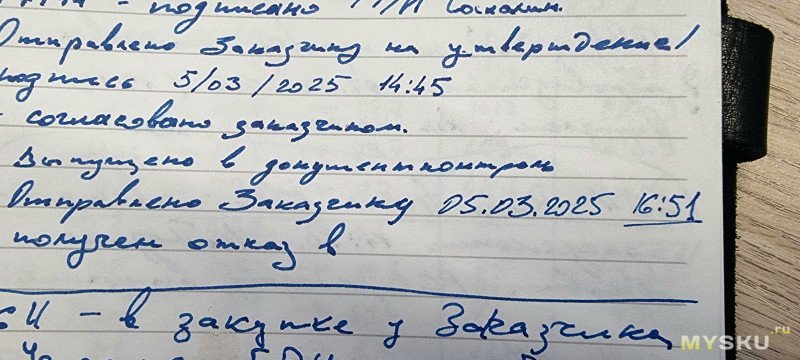 - подписано ГИП
Отправлено Заказчику на утверждение/
подпись 5/03/2025 14:45
- согласовано заказчиком.
Выпущено в документконтроль
Отправлено Заказчику 05.03.2025 16:51
получен отказ в
- в закупке у Заказчика
MYSKU.ru